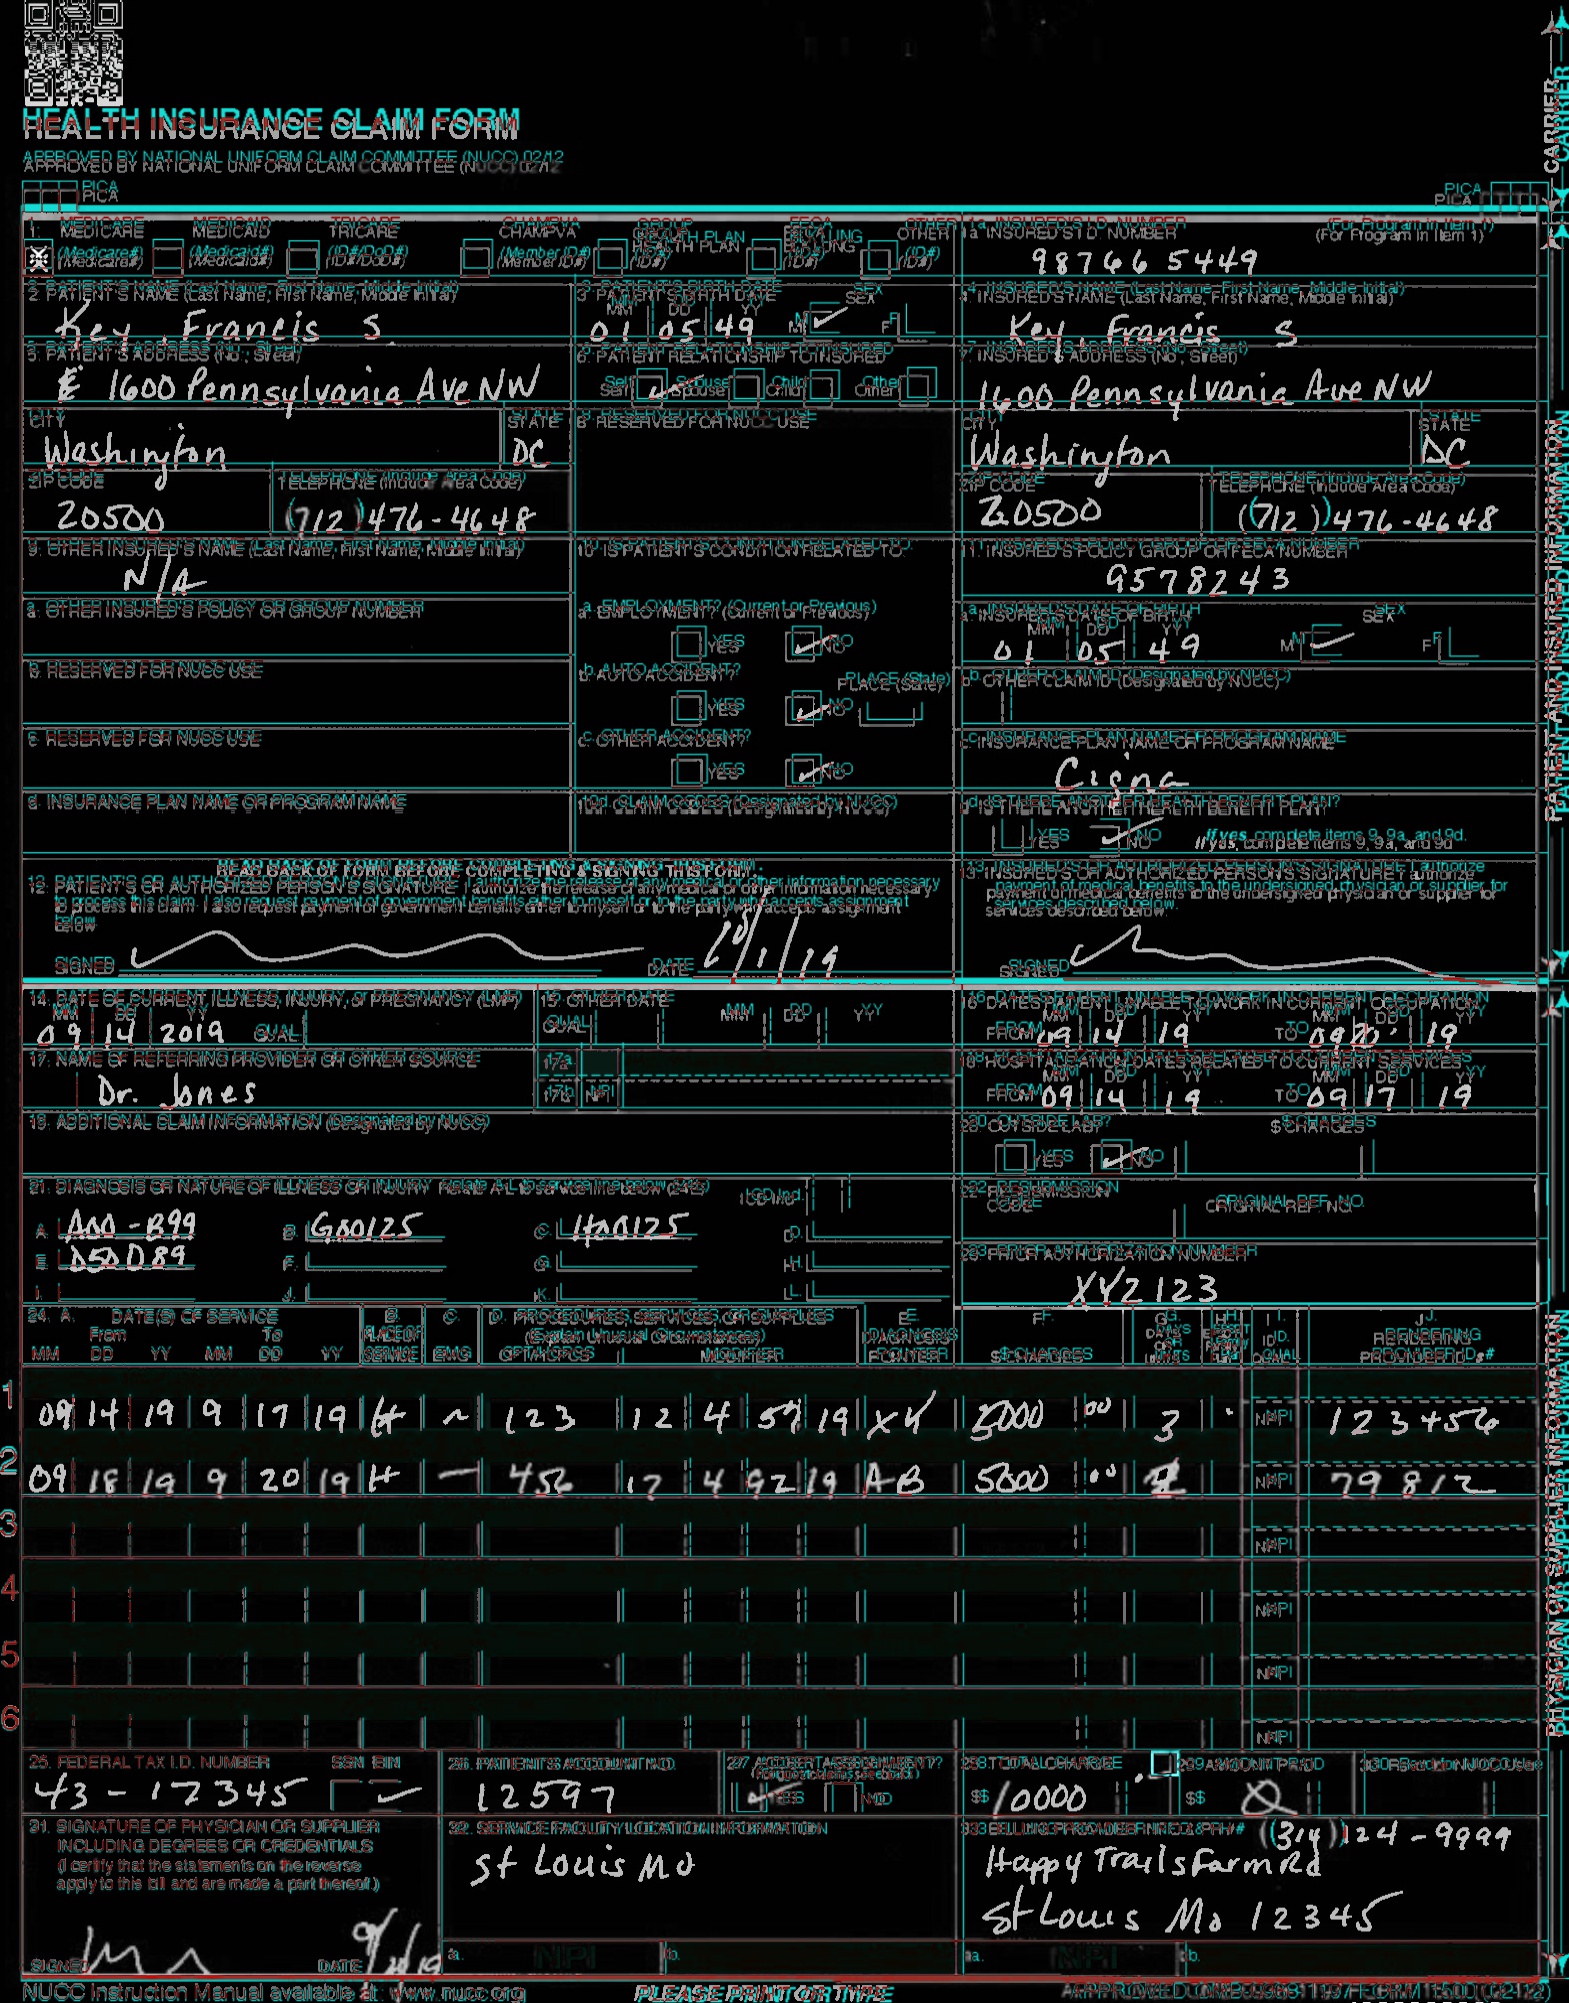 HEALTH INSURANCE CLAIM FORM
APPROVED BY NATIONAL UNIFORM CLAIM COMMITTEE (NUCC) 02/12
PICA PICA
CARRIER
1. MEDICARE MEDICAID TRICARE CHAMPVA GROUP HEALTH PLAN FECA BLK LUNG OTHER
(Medicare#) (Medicaid#) (ID#/DoD#) (Member ID#) (ID#) (ID#) (ID#)
1a. INSURED'S I.D. NUMBER (For Program in Item 1)
98766 5449
2. PATIENT'S NAME (Last Name, First Name, Middle Initial)
Key, Francis S
3. PATIENT'S BIRTH DATE SEX
MM DD YY
01 05 49 M F
4. INSURED'S NAME (Last Name, First Name, Middle Initial)
Key, Francis S
5. PATIENT'S ADDRESS (No., Street)
1600 Pennsylvania Ave NW
6. PATIENT RELATIONSHIP TO INSURED
Self Spouse Child Other
7. INSURED'S ADDRESS (No., Street)
1600 Pennsylvania Ave NW
CITY STATE
Washington DC
8. RESERVED FOR NUCC USE
CITY STATE
Washington DC
ZIP CODE TELEPHONE (Include Area Code)
20500 (712) 476-4648
ZIP CODE TELEPHONE (Include Area Code)
20500 (712) 476-4648
9. OTHER INSURED'S NAME (Last Name, First Name, Middle Initial)
N/A
10. IS PATIENT'S CONDITION RELATED TO:
11. INSURED'S POLICY GROUP OR FECA NUMBER
9578243
a. OTHER INSURED'S POLICY OR GROUP NUMBER
a. EMPLOYMENT? (Current or Previous)
YES NO
a. INSURED'S DATE OF BIRTH SEX
MM DD YY
01 05 49 M F
b. RESERVED FOR NUCC USE
b. AUTO ACCIDENT? PLACE (State)
YES NO
b. OTHER CLAIM ID (Designated by NUCC)
c. RESERVED FOR NUCC USE
c. OTHER ACCIDENT?
YES NO
c. INSURANCE PLAN NAME OR PROGRAM NAME
Cigna
d. INSURANCE PLAN NAME OR PROGRAM NAME
10d. CLAIM CODES (Designated by NUCC)
d. IS THERE ANOTHER HEALTH BENEFIT PLAN?
YES NO If yes, complete items 9, 9a, and 9d.
PATIENT AND INSURED INFORMATION
READ BACK OF FORM BEFORE COMPLETING & SIGNING THIS FORM.
12. PATIENT'S OR AUTHORIZED PERSON'S SIGNATURE I authorize the release of any medical or other information necessary
to process this claim. I also request payment of government benefits either to myself or to the party who accepts assignment
below.
SIGNED DATE 10/1/19
13. INSURED'S OR AUTHORIZED PERSON'S SIGNATURE I authorize
payment of medical benefits to the undersigned physician or supplier for
services described below.
SIGNED
14. DATE OF CURRENT ILLNESS, INJURY, or PREGNANCY (LMP)
MM DD YY
09 14 2019 QUAL.
15. OTHER DATE
QUAL. MM DD YY
16. DATES PATIENT UNABLE TO WORK IN CURRENT OCCUPATION
MM DD YY MM DD YY
FROM 09 14 19 TO 09 20 19
17. NAME OF REFERRING PROVIDER OR OTHER SOURCE
Dr. Jones
17a.
17b. NPI
18. HOSPITALIZATION DATES RELATED TO CURRENT SERVICES
MM DD YY MM DD YY
FROM 09 14 19 TO 09 17 19
19. ADDITIONAL CLAIM INFORMATION (Designated by NUCC)
20. OUTSIDE LAB? $ CHARGES
YES NO
21. DIAGNOSIS OR NATURE OF ILLNESS OR INJURY Relate A-L to service line below (24E) ICD Ind.
A. A00-B99 B. G00125 C. H00125 D.
E. D50D89 F. G. H.
I. J. K. L.
22. RESUBMISSION CODE ORIGINAL REF. NO.
23. PRIOR AUTHORIZATION NUMBER
XYZ123
24. A. DATE(S) OF SERVICE B. C. D. PROCEDURES, SERVICES, OR SUPPLIES E. F. G. H. I. J.
From To PLACE OF (Explain Unusual Circumstances) DIAGNOSIS DAYS OR ID. RENDERING
MM DD YY MM DD YY SERVICE EMG CPT/HCPCS MODIFIER POINTER $ CHARGES UNITS QUAL. PROVIDER ID. #
1 09 14 19 9 17 19 H ~ 123 12 4 57 19 XY 5000 00 3 NPI 123456
2 09 18 19 9 20 19 H — 456 12 4 92 19 AB 5000 00 NPI 79812
3 NPI
4 NPI
5 NPI
6 NPI
PHYSICIAN OR SUPPLIER INFORMATION
25. FEDERAL TAX I.D. NUMBER SSN EIN
43-12345
26. PATIENT'S ACCOUNT NO.
12597
27. ACCEPT ASSIGNMENT?
YES NO
28. TOTAL CHARGE
$ 10000
29. AMOUNT PAID
$ 0
30. Rsvd for NUCC Use
31. SIGNATURE OF PHYSICIAN OR SUPPLIER
INCLUDING DEGREES OR CREDENTIALS
(I certify that the statements on the reverse
apply to this bill and are made a part thereof.)
SIGNED DATE 9/20/19
32. SERVICE FACILITY LOCATION INFORMATION
St Louis MO
a. NPI b.
33. BILLING PROVIDER INFO & PH # (314) 124-9999
Happy Trails Farm Rd
St Louis Mo 12345
a. NPI b.
NUCC Instruction Manual available at: www.nucc.org
PLEASE PRINT OR TYPE